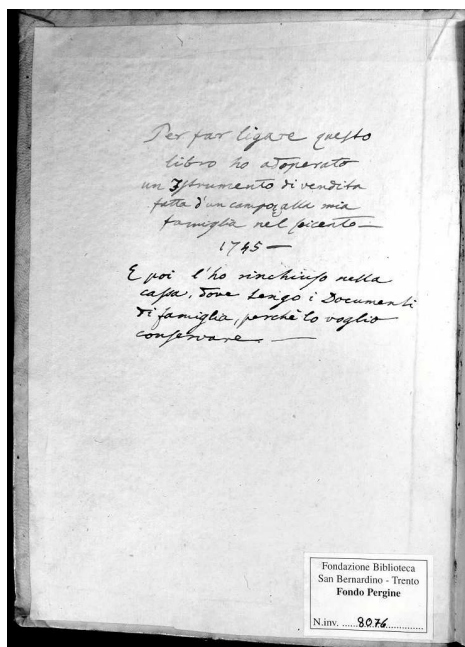 Per far ligare questo
libro ho adoperato
un Istrumento di vendita
fatta d'un campo alla mia
famiglia nel seicento—
1745—
E poi l'ho rinchiuso nella
cassa, dove tengo i Documenti
di famiglia, perchè lo voglio
conservare. —
Fondazione Biblioteca
San Bernardino - Trento
Fondo Pergine
N.inv. ......8076..............